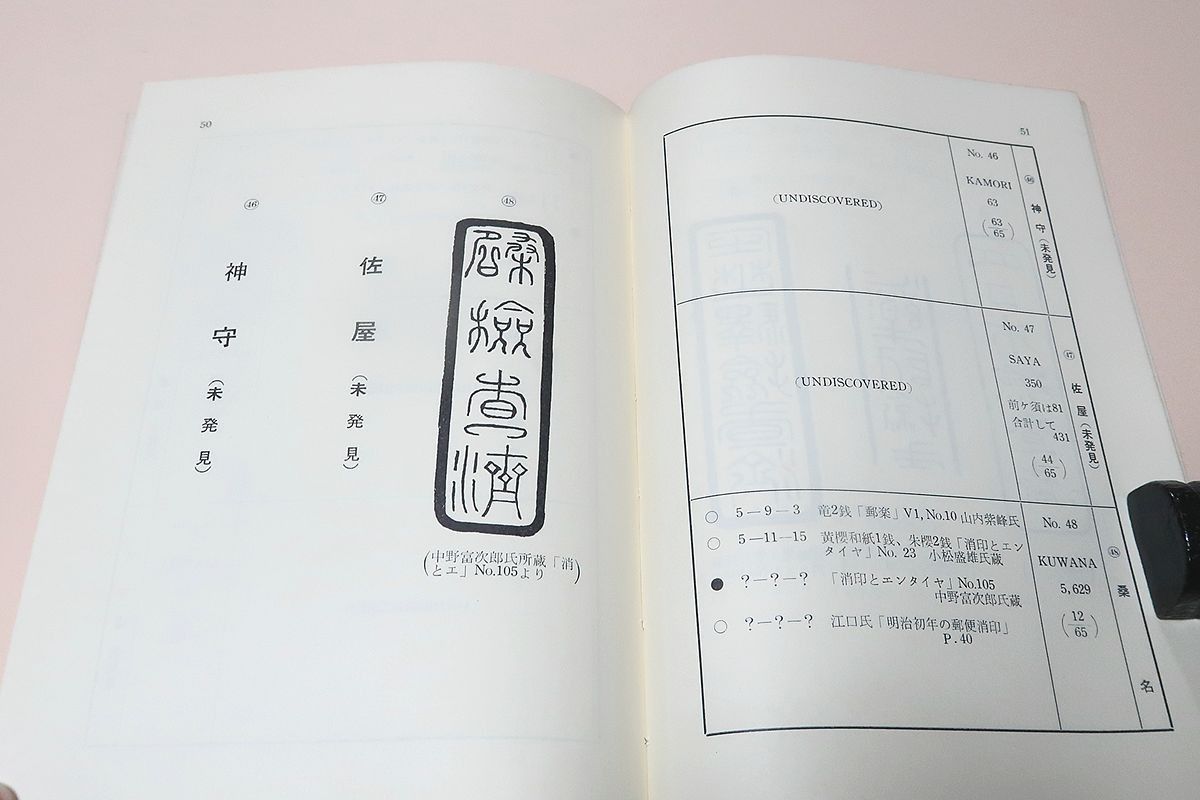 50
㊽
桑名
檢
査
濟
(中野富次郎氏所蔵「消
とエ」No.105より)
㊼
佐屋(未発見)
㊻
神守(未発見)
51
㊻
神守(未発見)
No. 46
KAMORI
63
(63/65)
(UNDISCOVERED)
㊼
佐屋(未発見)
No. 47
SAYA
350
前ケ須は81
合計して
431
(44/65)
(UNDISCOVERED)
㊽
桑名
No. 48
KUWANA
5,629
(12/65)
○ 5―9―3 竜2銭「郵楽」V1, No.10 山内紫峰氏
○ 5―11―15 黄櫻和紙1銭、朱櫻2銭「消印とエン
タイヤ」No. 23 小松盛雄氏蔵
● ?―?―? 「消印とエンタイヤ」No.105
中野富次郎氏蔵
○ ?―?―? 江口氏「明治初年の郵便消印」
P.40